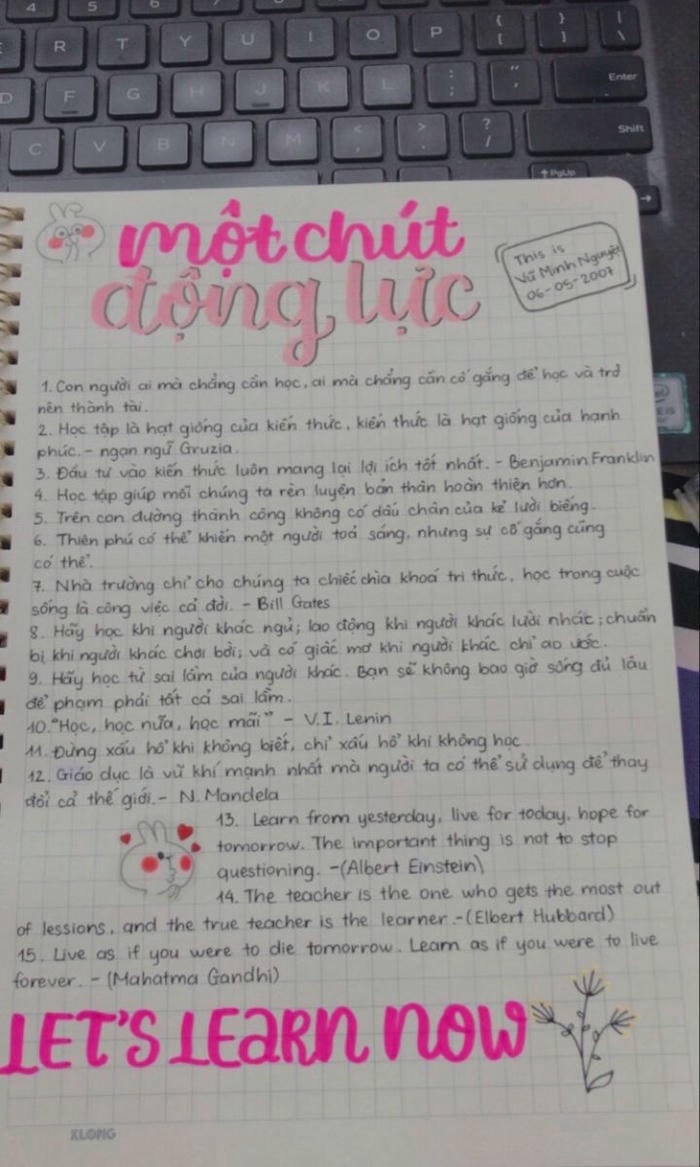 4 5 6
R T Y U I O P { [ } ] | \
D F G H J K L : ; " ' Enter
C V B N M < , > . ? / Shift
PgUp
một chút
động lực
This is
Vũ Minh Nguyệt
06-05-2007
1. Con người ai mà chẳng cần học, ai mà chẳng cần cố gắng để học và trở
nên thành tài.
2. Học tập là hạt giống của kiến thức, kiến thức là hạt giống của hạnh
phúc. - ngạn ngữ Gruzia.
3. Đầu tư vào kiến thức luôn mang lại lợi ích tốt nhất. - Benjamin Franklin
4. Học tập giúp mỗi chúng ta rèn luyện bản thân hoàn thiện hơn.
5. Trên con đường thành công không có dấu chân của kẻ lười biếng.
6. Thiên phú có thể khiến một người toả sáng, nhưng sự cố gắng cũng
có thể.
7. Nhà trường chỉ cho chúng ta chiếc chìa khoá tri thức, học trong cuộc
sống là công việc cả đời. - Bill Gates
8. Hãy học khi người khác ngủ; lao động khi người khác lười nhác; chuẩn
bị khi người khác chơi bời; và có giấc mơ khi người khác chỉ ao ước.
9. Hãy học từ sai lầm của người khác. Bạn sẽ không bao giờ sống đủ lâu
để phạm phải tất cả sai lầm.
10. "Học, học nữa, học mãi" - V.I. Lenin
11. Đừng xấu hổ khi không biết, chỉ xấu hổ khi không học
12. Giáo dục là vũ khí mạnh nhất mà người ta có thể sử dụng để thay
đổi cả thế giới. - N. Mandela
13. Learn from yesterday, live for today, hope for
tomorrow. The important thing is not to stop
questioning. -(Albert Einstein)
14. The teacher is the one who gets the most out
of lessions, and the true teacher is the learner.-(Elbert Hubbard)
15. Live as if you were to die tomorrow. Learn as if you were to live
forever. - (Mahatma Gandhi)
LET'S LEARN NOW
KLONG